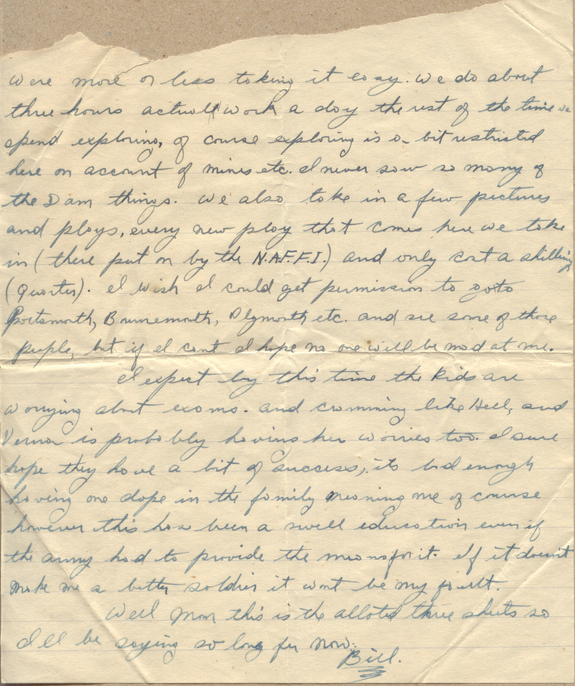 were more or less taking it easy. We do about
three hours actual work a day the rest of the time we
spend exploring, of course exploring is a bit restricted
here on account of mines etc. I never saw so many of
the Dam things. We also take in a few pictures
and plays, every new play that comes here we take
in (there put on by the N.A.F.F.I.) and only cost a shilling
(quarter). I wish I could get permission to go to
Portsmouth, Burnemouth, Plymouth etc. and see some of those
people, but if I cant I hope no one will be mad at me.
I expect by this time the kids are
worrying about exams. and cramming like Hell, and
Verna is probably having her worries too. I sure
hope they have a bit of success, its bad enough
having one dope in the family meaning me of course
however this has been a swell education even if
the army had to provide the means for it. If it doesnt
make me a better soldier it wont be my fault.
Well Mom this is the alloted three sheets so
I'll be saying so long for now.
Bill.